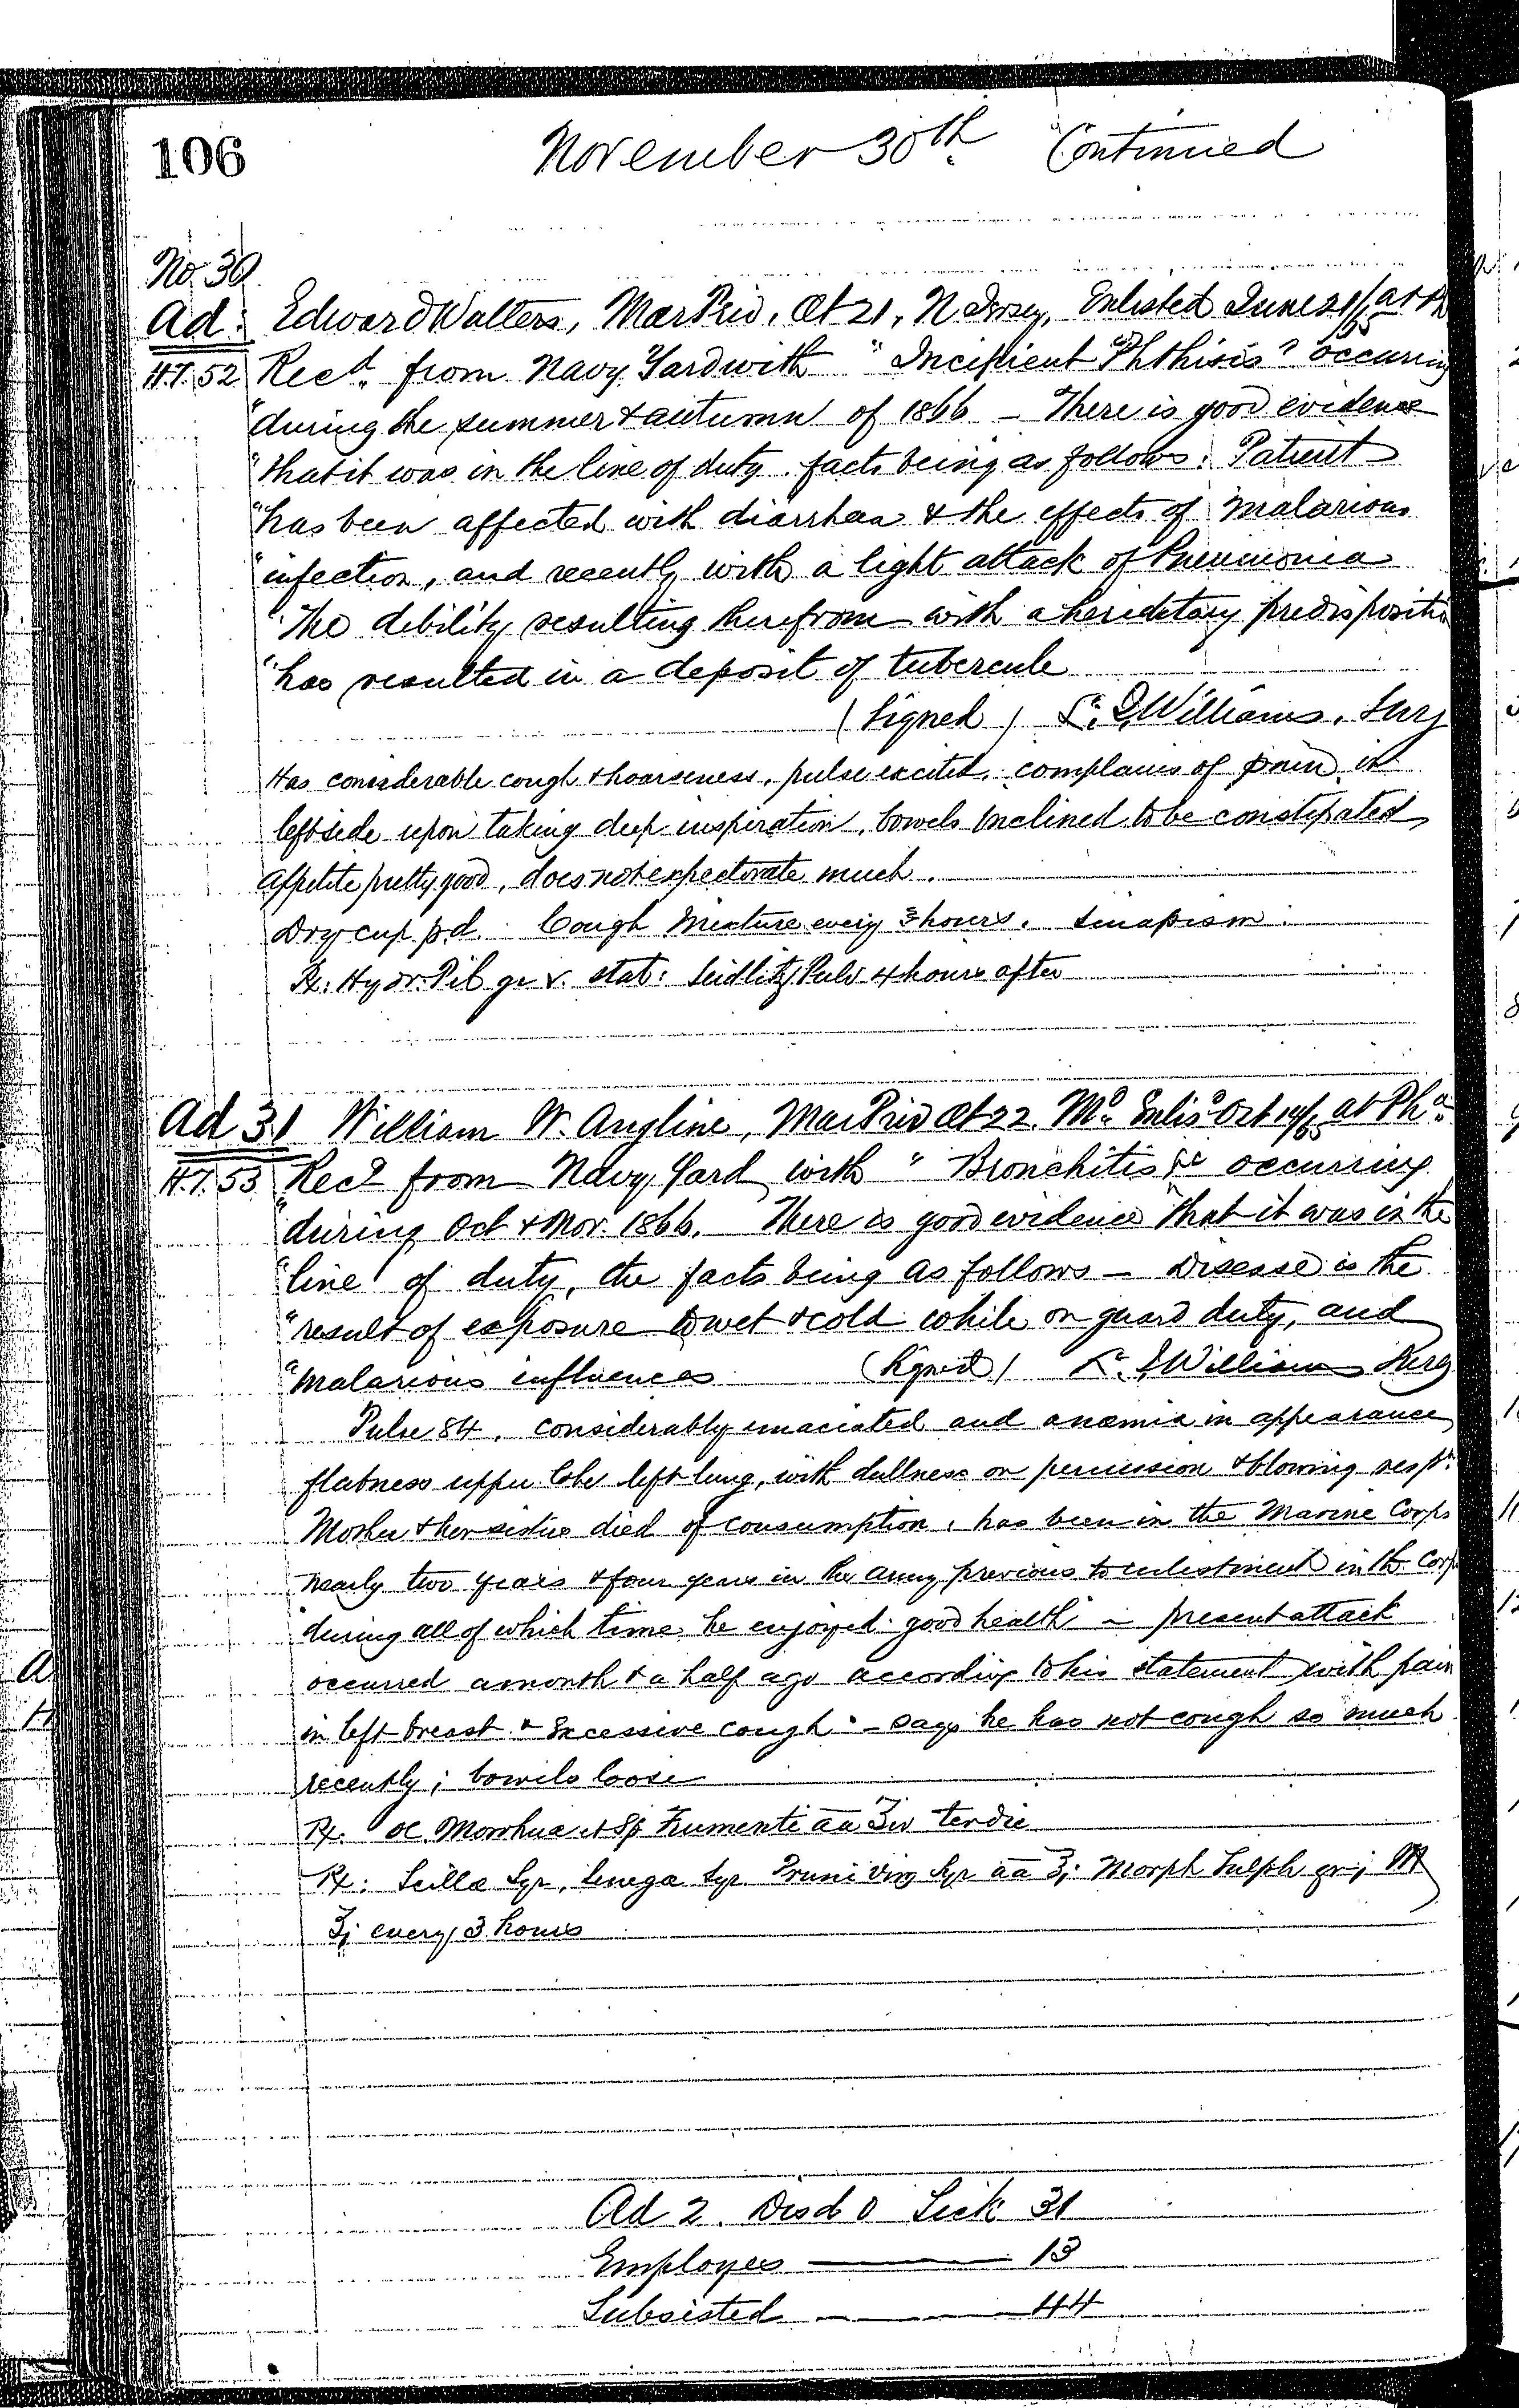 106
November 30th Continued
No. 30
Ad. Edward Walters, Mar Priv. Æt 21, N. Jersey, Enlisted June 21/65 at
H.T. 52 Recd. from Navy Yard with "Incipient Phthisis" occurring
"during the summer & autumn of 1866 – There is good evidence
"that it was in the line of duty. facts being as follows: Patient
"has been affected with diarrhœa & the effects of malarious
"infection, and recently with a light attack of Pneumonia
"The debility resulting therefrom with a hereditary predispositi
"has resulted in a deposit of tubercule
(Signed) Williams, Surg
Has considerable cough & hoarseness, pulse excited, complains of pain in
left side upon taking deep inspiration, bowels inclined to be constipated
Appetite pretty good, does not expectorate much.
Dry cup p.d. Cough Mixture every 3 hours. Sinapism.
Rx: Hydr. Pil gr v. stat: Seidlitz Pulv 4 hours after
Ad 31 William W. Angline, Mar Priv Æt 22. Md. Enlisd Oct 14/65 at Pha.
H.T. 53 Recd from Navy Yard with "Bronchitis &c occurring
"during Oct & Nov. 1866. There is good evidence that it was in the
"line of duty, the facts being as follows – Disease is the
"result of exposure to wet & cold while on guard duty, and
"malarious influences (Signed) Williams Surg
Pulse 84, considerably emaciated and anæmic in appearance
flatness upper lobe left lung, with dullness on percussion & blowing respn.
Mother & her sister died of consumption, has been in the Marine Corps
nearly two years & four years in the army previous to enlistment in the Corp
during all of which time he enjoyed good health – present attack
occurred a month & a half ago according to his statement with pain
in left breast & excessive cough – says he has not cough so much
recently; bowels loose
Rx. Ol. Morrhuæ et Sp Frumenti āā ʒiv ter die
Rx: Scillæ Syr, Senega Syr Pruni Virg Syr āā ℥j Morph Sulph grj M
ʒj every 3 hours
Ad 2. Disd 0 Sick 31
Employees — 13
Subsisted — 44